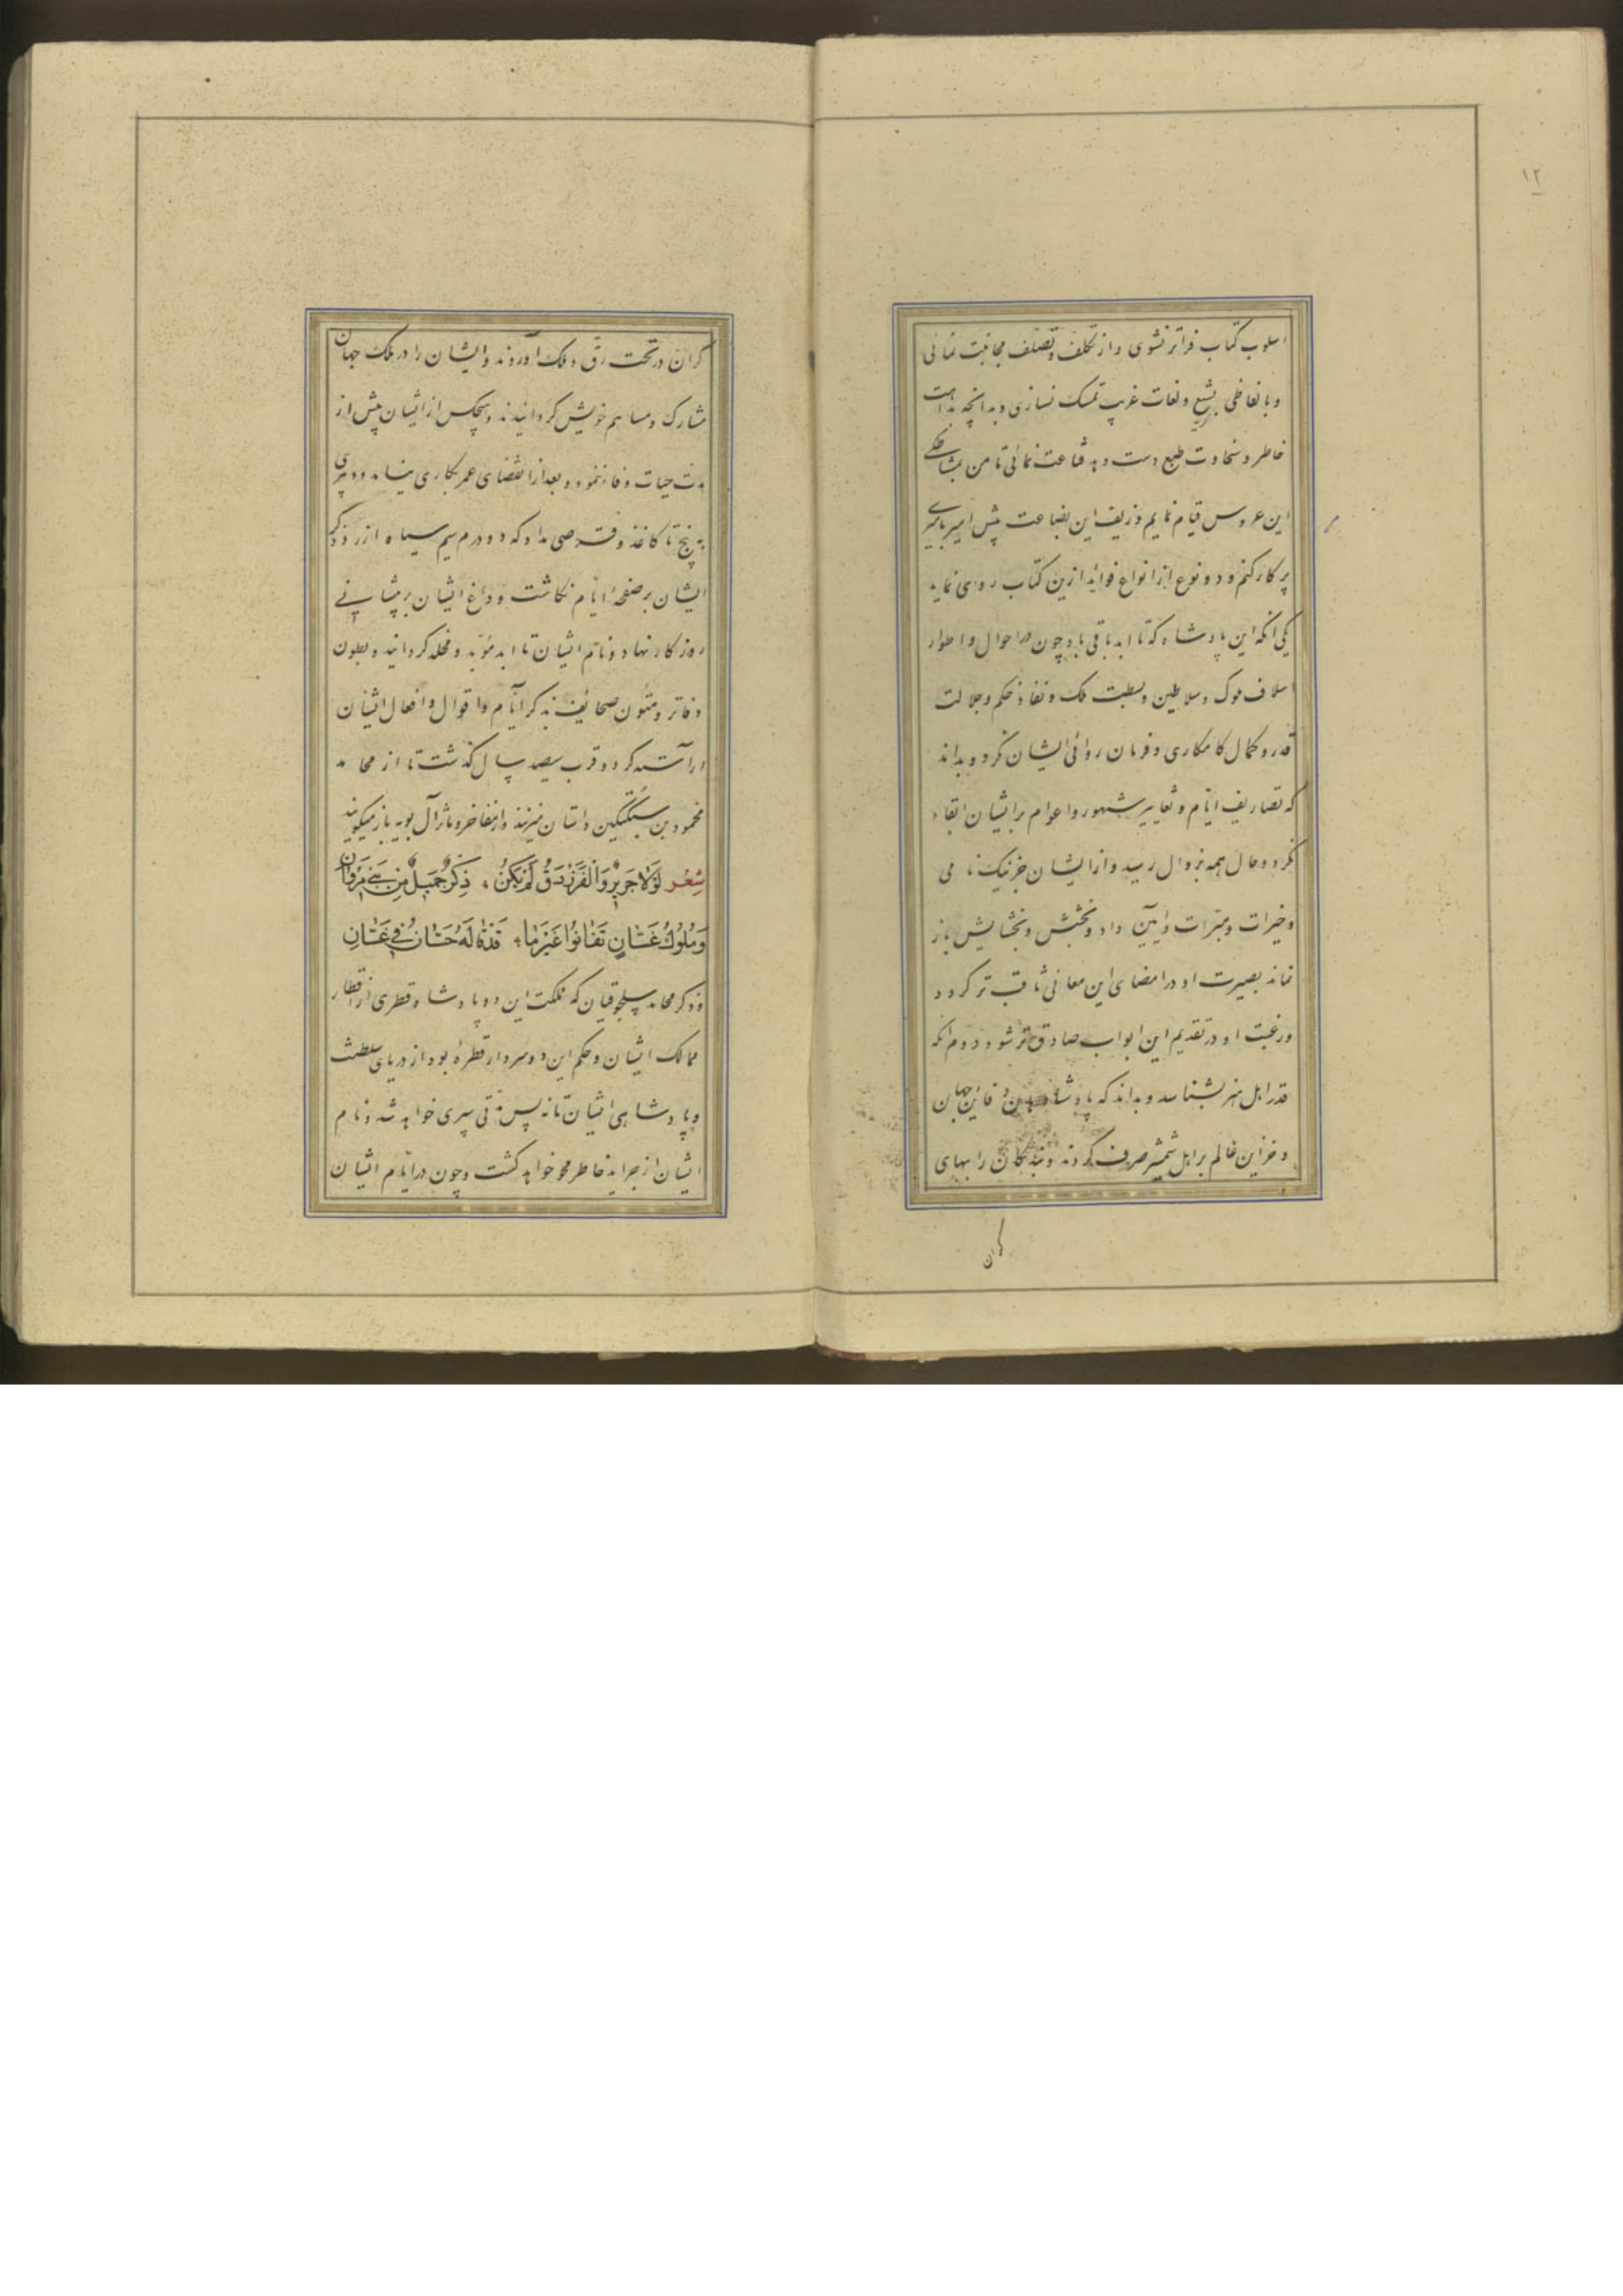 ۱۲
اسلوب کتاب فراتر نشوی و از تکلف و تصلف مجانبت نمائی
و بالفاظی بشع و لغات غریب تمسک نسازی و بدانچه بداهت
خاطر و سخاوت طبع دست دهد قناعت نمائی تا من بمشاطکی
این عروس قیام نمایم و زیف این بضاعت پیش امیر بامیری
بر کار کنم و دو نوع از انواع فوائد ازین کتاب روی نماید
یکی آنکه این پادشاه که تا ابد باقی باد چون در احوال و اطوار
اسلاف ملوک و سلاطین و بسطت ملک و نفاذ حکم و جلالت
قدر و کمال کامکاری و فرمان روائی ایشان نکرد و بداند
که تصاریف ایام و تعابیر شهور و اعوام بر ایشان ابقاء
نکرد و حال همه بزوال رسید و از ایشان جز نیک نامی
و خیرات و مبرات و آیین داد و بخشش و بخشایش باز
نماند بصیرت او در امضای این معانی ثاقب تر کردد
و رغبت او در تقدیم این ابواب صادق تر شود دوم آنکه
قدر اهل هنر بشناسد و بداند که پادشاهان دفاین جهان
و خزاین عالم بر اهل شمشیر صرف کردند و بندکان را ببهای
کران
کران در تحت رق و ملک آوردند و ایشان را در ملک جهان
مشارک و مساهم خویش کردانیدند و هیچکس از ایشان پیش از
مدت حیات وفا ننمود و بعد از انقضای عمر بکاری نیامد و دبیری
به پنج تا کاغذ و قرصی مداد که دو درم سیم سیاه ارزد ذکر
ایشان بر صفحهٔ ایام نکاشت و داغ ایشان بر پیشانی
روزکار نهاد و نام ایشان تا ابد مؤبد و مخلد کردانید و بطون
دفاتر و متون صحائف بذکر ایام و اقوال و افعال ایشان
آراسته کرد و قرب سیصد سال کذشت تا از محامد
محمود بن سبکتکین داستان میزنند و از مفاخر و مآثر آل بویه باز میکویند
شِعر لَوْلا جَریرٌ وَالفَرَزْدَقُ لَمْ یَکُنْ ذِکْرٌ جَمیلٌ مِن بَنی مَرْوانِ
وَمُلوكُ غَسّانٍ تَفانَوْا غَیْرَ ما قَدْ قالَهُ حَسّانُ فی غَسّانِ
و ذکر محامد سلجوقیان که مملکت این دو پادشاه قطری از اقطار
ممالک ایشان و حکم این دو سردار قطرهٔ بود از دریای سلطنت
و پادشاهی ایشان تا نه پس مدتی سپری خواهد شد و نام
ایشان از جراید خاطر محو خواهد کشت و چون در ایام ایشان